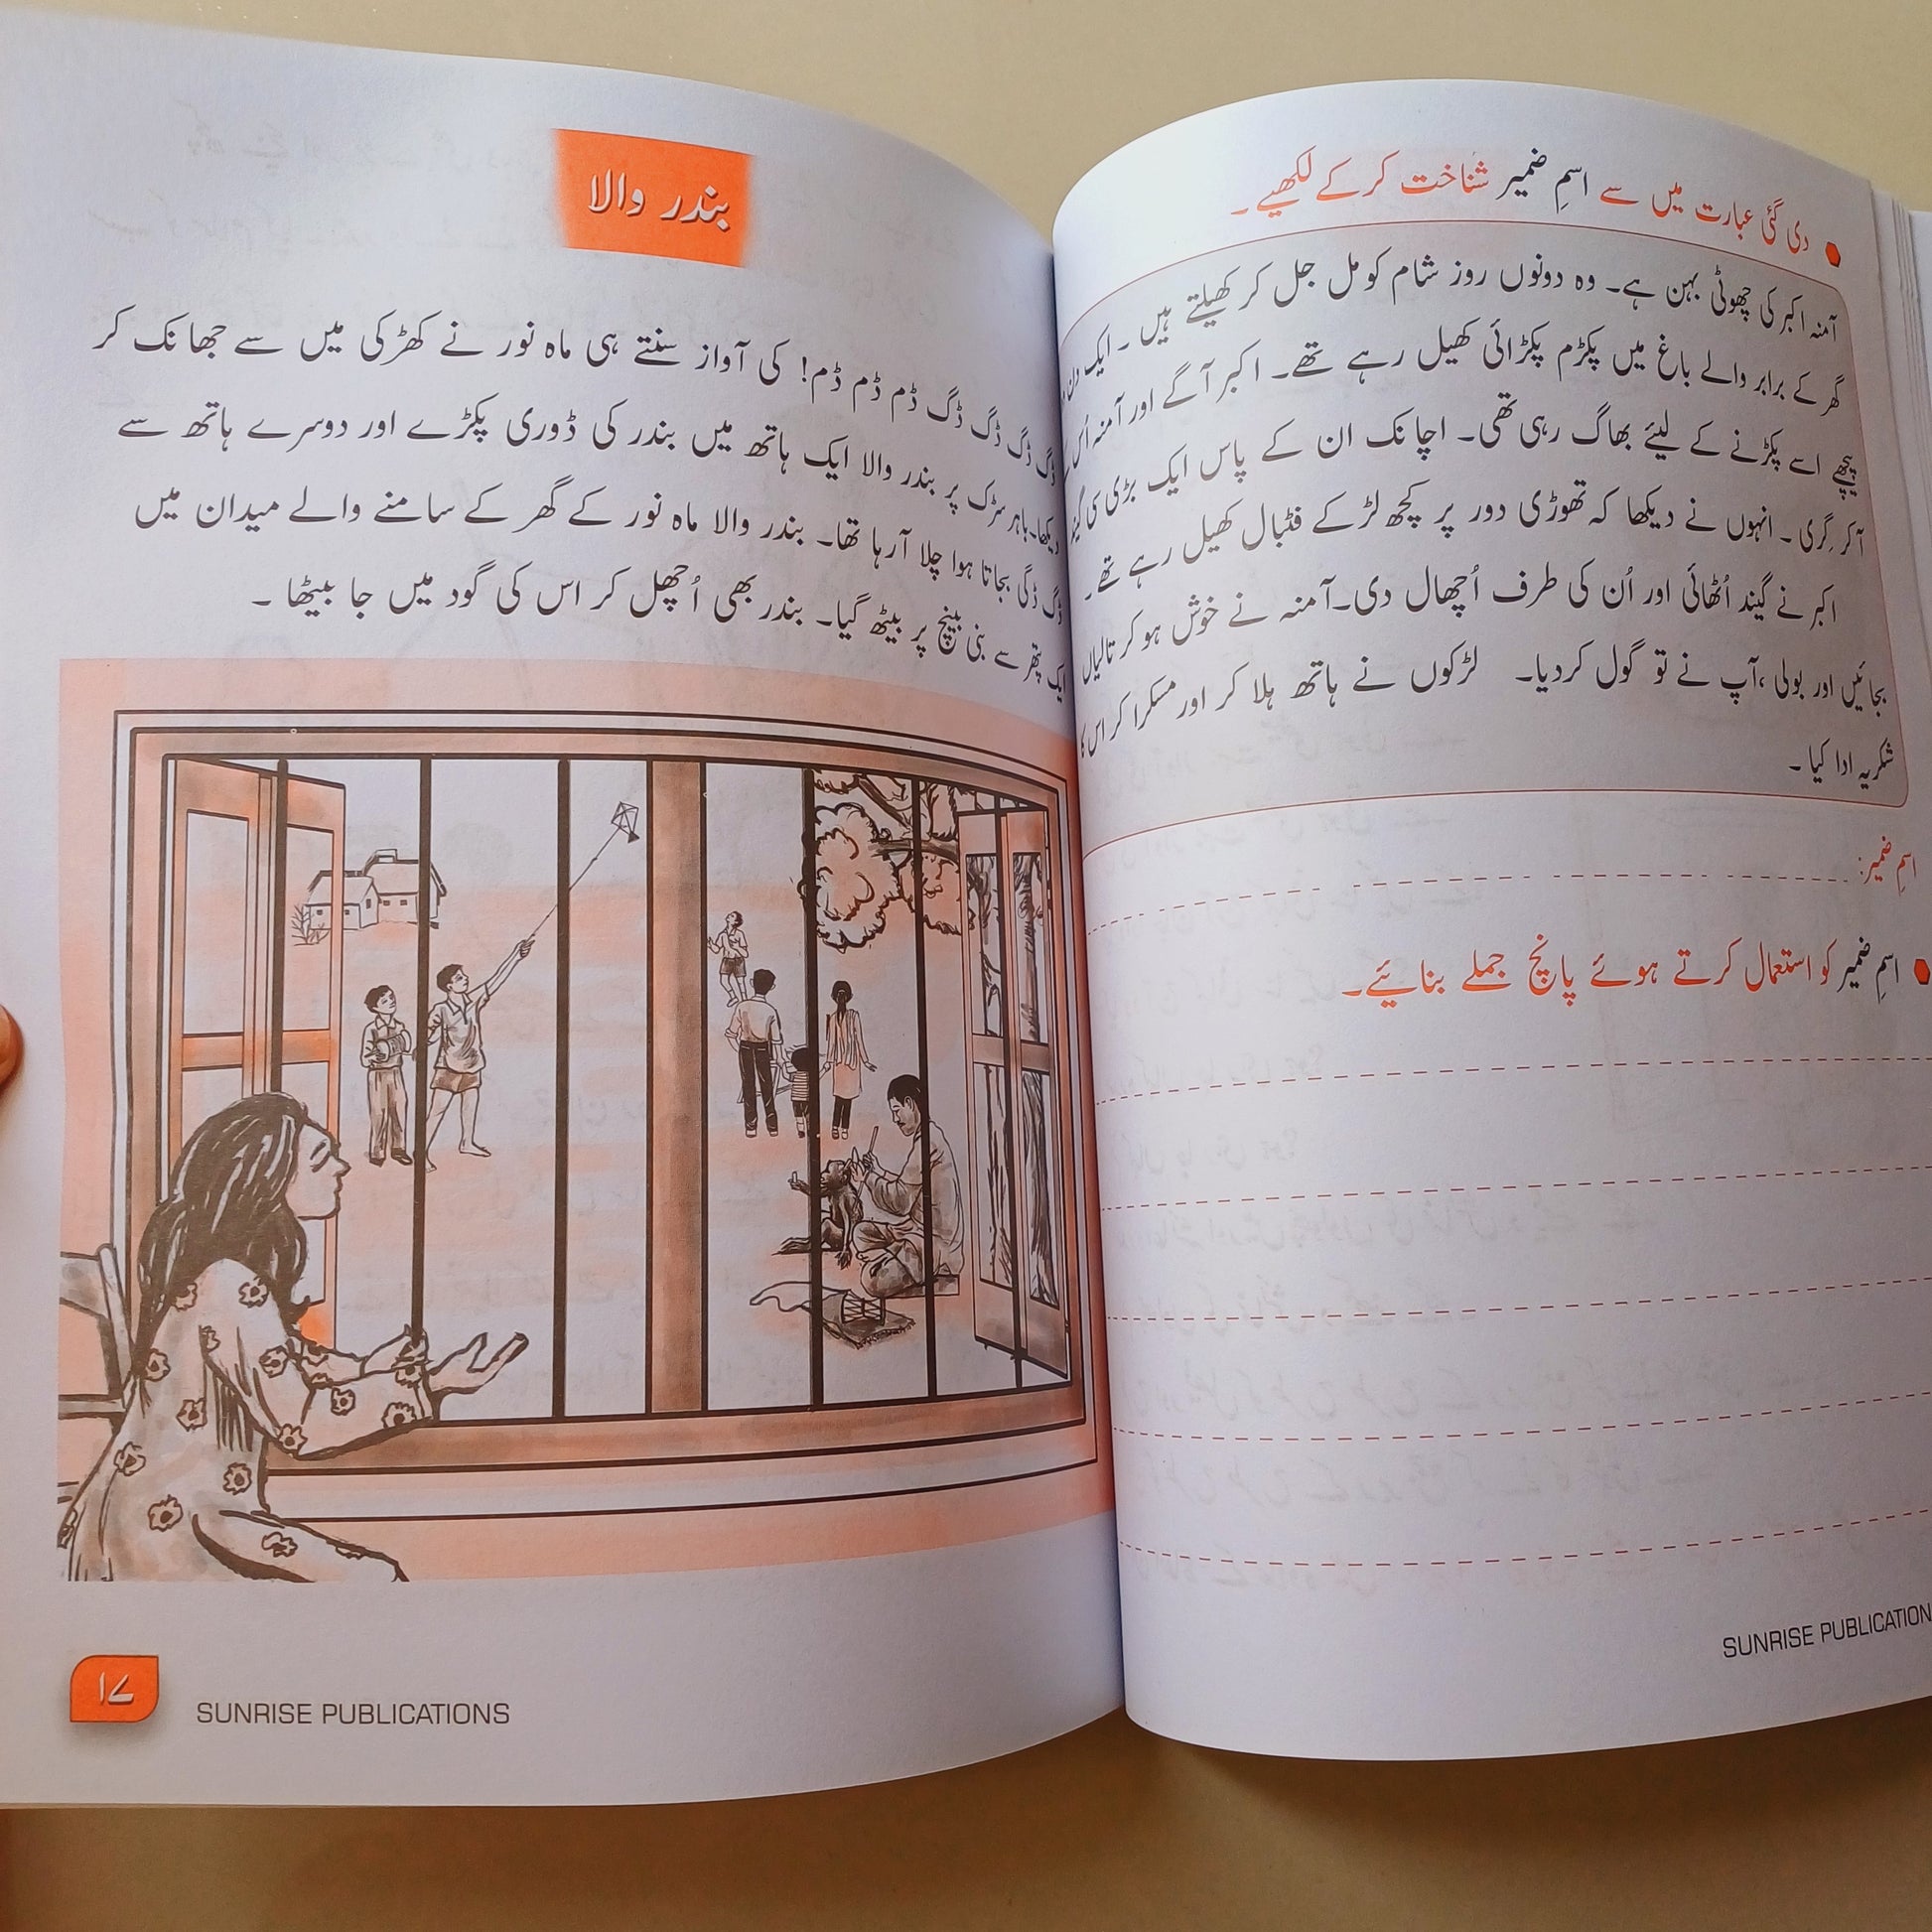 بندر والا
ڈگ ڈگ ڈگ ڈگ ڈم ڈم ڈم! کی آواز سنتے ہی ماہ نور نے کھڑکی میں سے جھانک کر
دیکھا۔ باہر سڑک پر بندر والا ایک ہاتھ میں بندر کی ڈوری پکڑے اور دوسرے ہاتھ سے
ڈگ ڈگی بجاتا ہوا چلا آرہا تھا۔ بندر والا ماہ نور کے گھر کے سامنے والے میدان میں
ایک پتھر سے بنی بینچ پر بیٹھ گیا۔ بندر بھی اُچھل کر اس کی گود میں جا بیٹھا ۔
۱۷
SUNRISE PUBLICATIONS
دی گئی عبارت میں سے اسمِ ضمیر شناخت کرکے لکھیے۔
آمنہ اکبر کی چھوٹی بہن ہے۔ وہ دونوں روز شام کو مل جل کر کھیلتے ہیں ۔ ایک دن
گھر کے برابر والے باغ میں پکڑم پکڑائی کھیل رہے تھے۔ اکبر آگے اور آمنہ اُس
پیچھے اسے پکڑنے کے لیئے بھاگ رہی تھی۔ اچانک ان کے پاس ایک بڑی سی گیند
آکر گِری ۔ انہوں نے دیکھا کہ تھوڑی دور پر کچھ لڑکے فٹبال کھیل رہے تھے۔
اکبر نے گیند اُٹھائی اور اُن کی طرف اُچھال دی۔ آمنہ نے خوش ہو کر تالیاں
بجائیں اور بولی ،آپ نے تو گول کردیا۔ لڑکوں نے ہاتھ ہلا کر اور مسکرا کر اس کا
شکریہ ادا کیا ۔
اسمِ ضمیر:
اسمِ ضمیر کو استعمال کرتے ہوئے پانچ جملے بنائیے۔
SUNRISE PUBLICATION